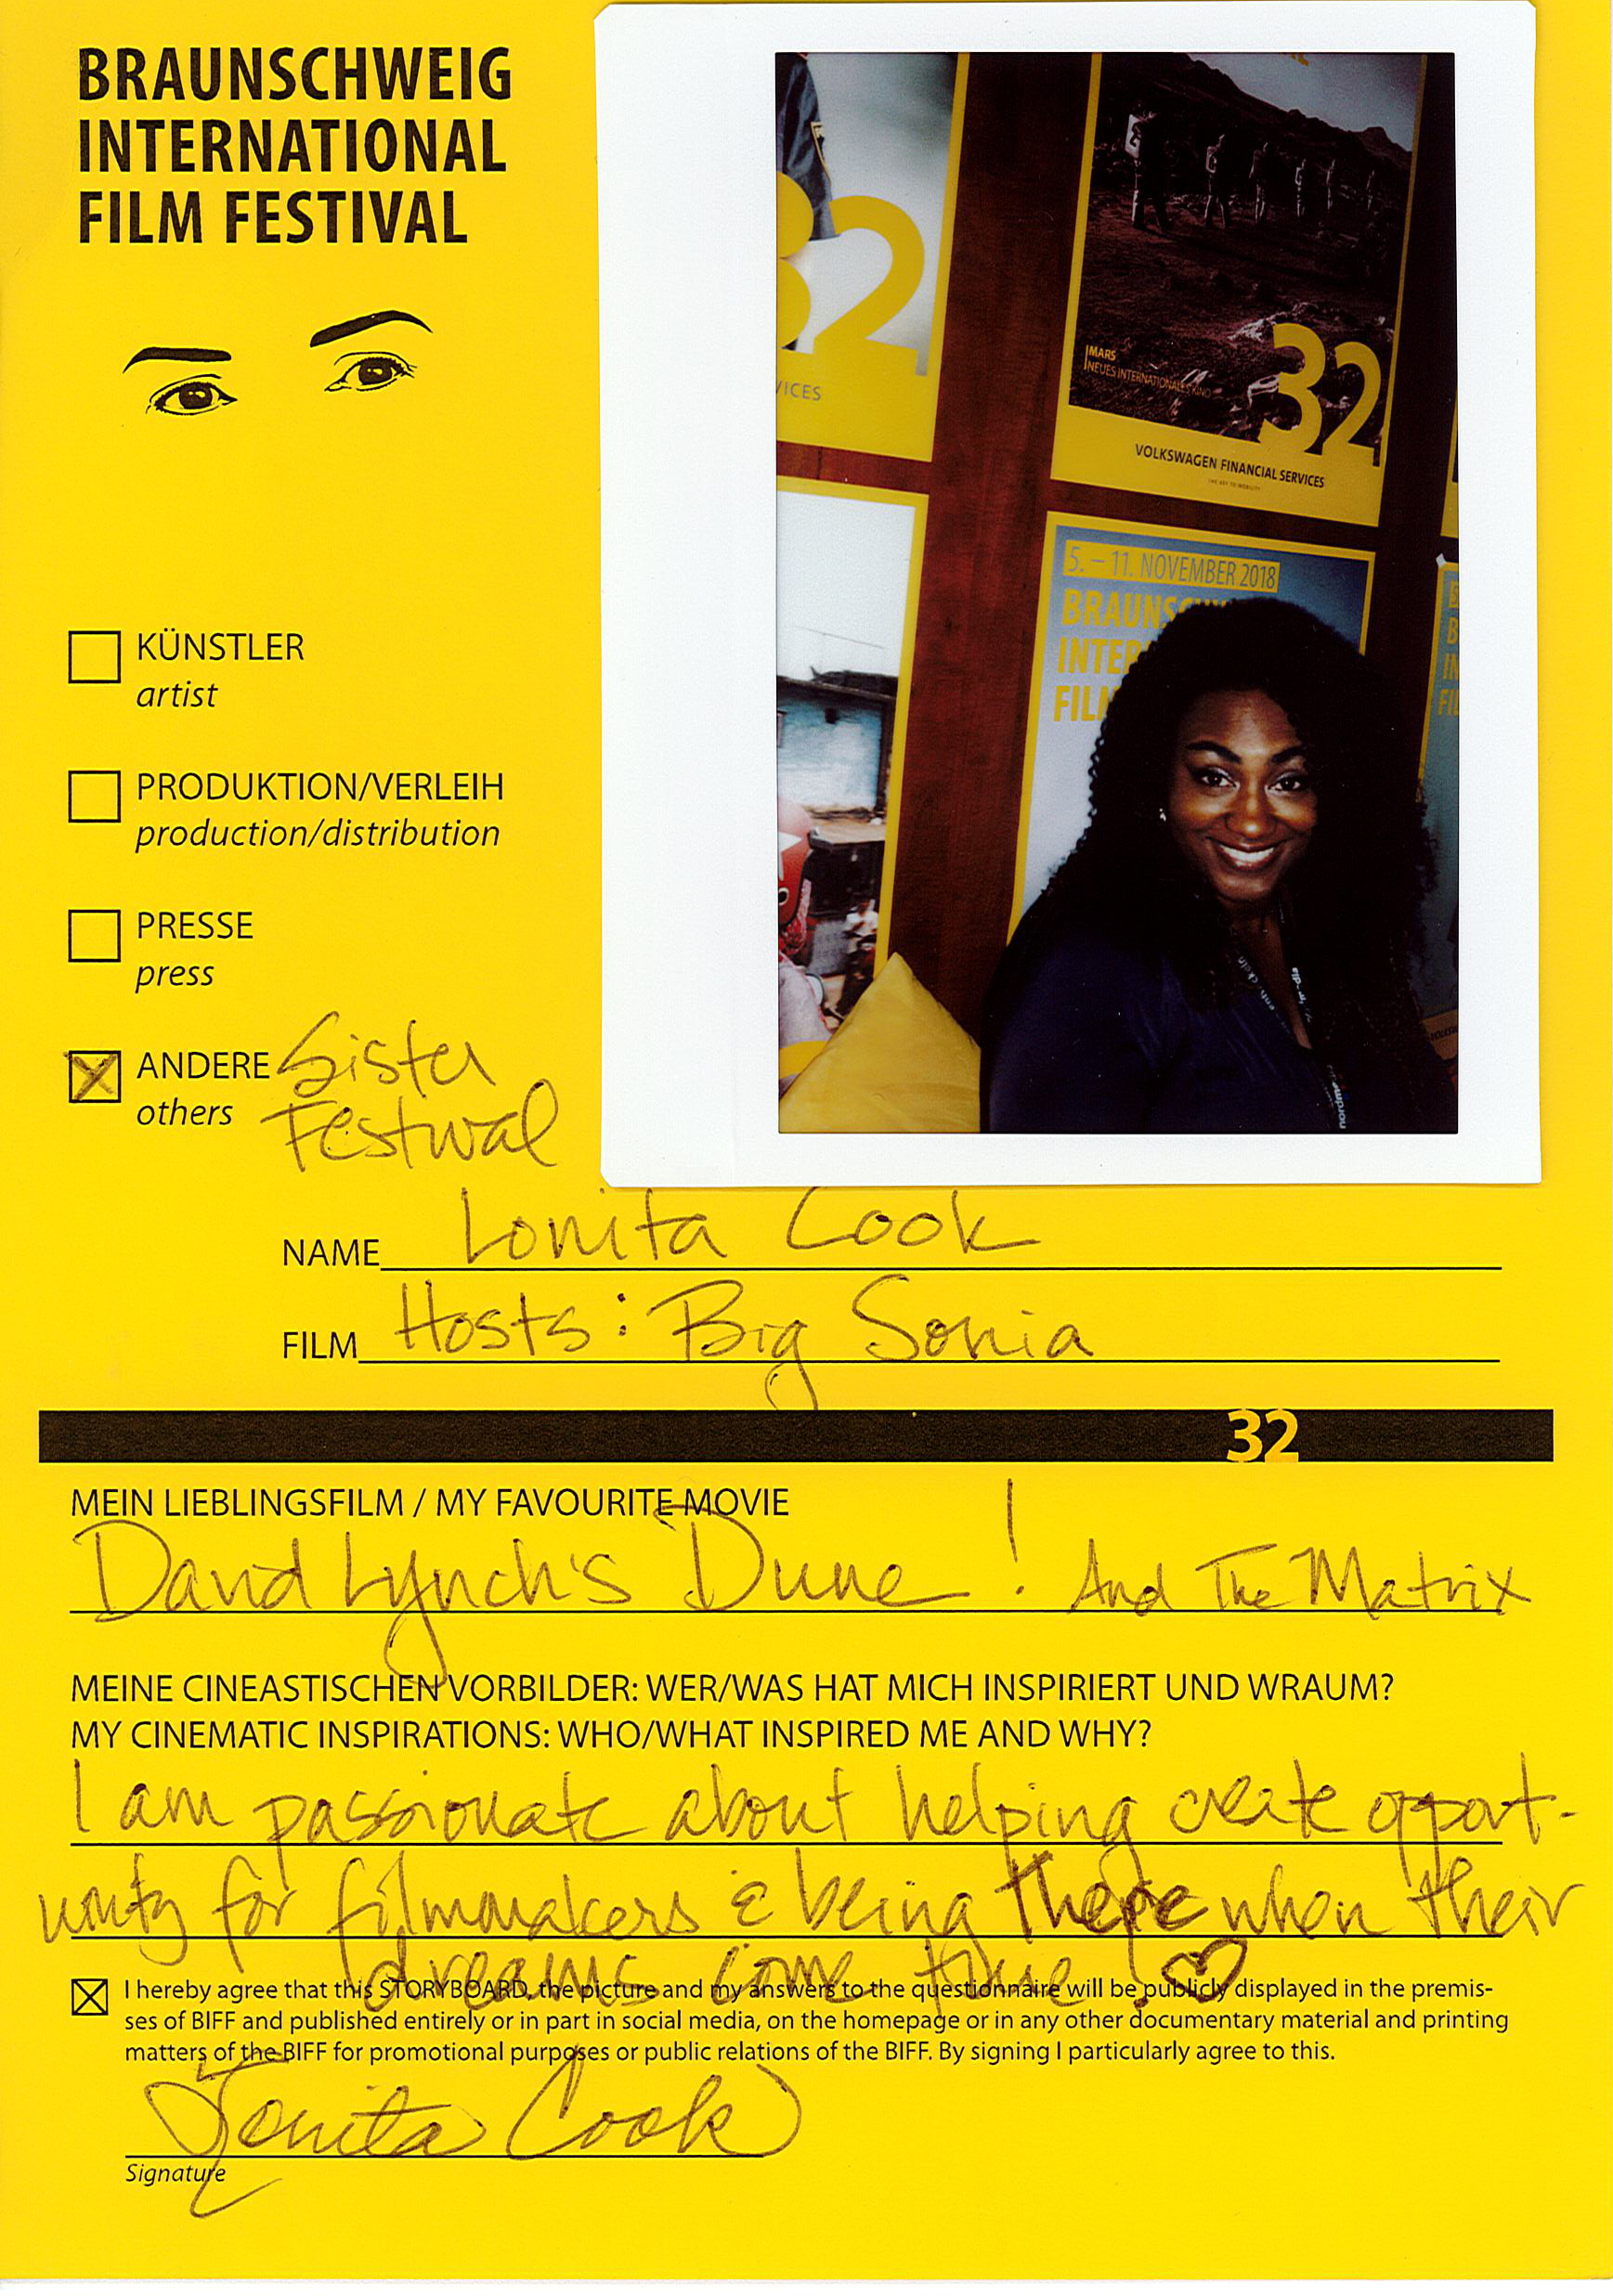 BRAUNSCHWEIG
INTERNATIONAL
FILM FESTIVAL
32
VICES
MARS
NEUES INTERNATIONALES KINO
32
VOLKSWAGEN FINANCIAL SERVICES
THE KEY TO MOBILITY
5. – 11. NOVEMBER 2018
BRAUNSCHW
INTER
FILM
B
IN
FIL
nordm
KÜNSTLER
artist
PRODUKTION/VERLEIH
production/distribution
PRESSE
press
ANDERE Sister
others Festival
NAME Lonita Cook
FILM Hosts: Big Sonia
32
MEIN LIEBLINGSFILM / MY FAVOURITE MOVIE
David Lynch's Dune! And The Matrix
MEINE CINEASTISCHEN VORBILDER: WER/WAS HAT MICH INSPIRIERT UND WRAUM?
MY CINEMATIC INSPIRATIONS: WHO/WHAT INSPIRED ME AND WHY?
I am passionate about helping create opport-
unity for filmmakers & being there when their
dreams come true! ♡
I hereby agree that this STORYBOARD, the picture and my answers to the questionnaire will be publicly displayed in the premis-
ses of BIFF and published entirely or in part in social media, on the homepage or in any other documentary material and printing
matters of the BIFF for promotional purposes or public relations of the BIFF. By signing I particularly agree to this.
Lonita Cook
Signature